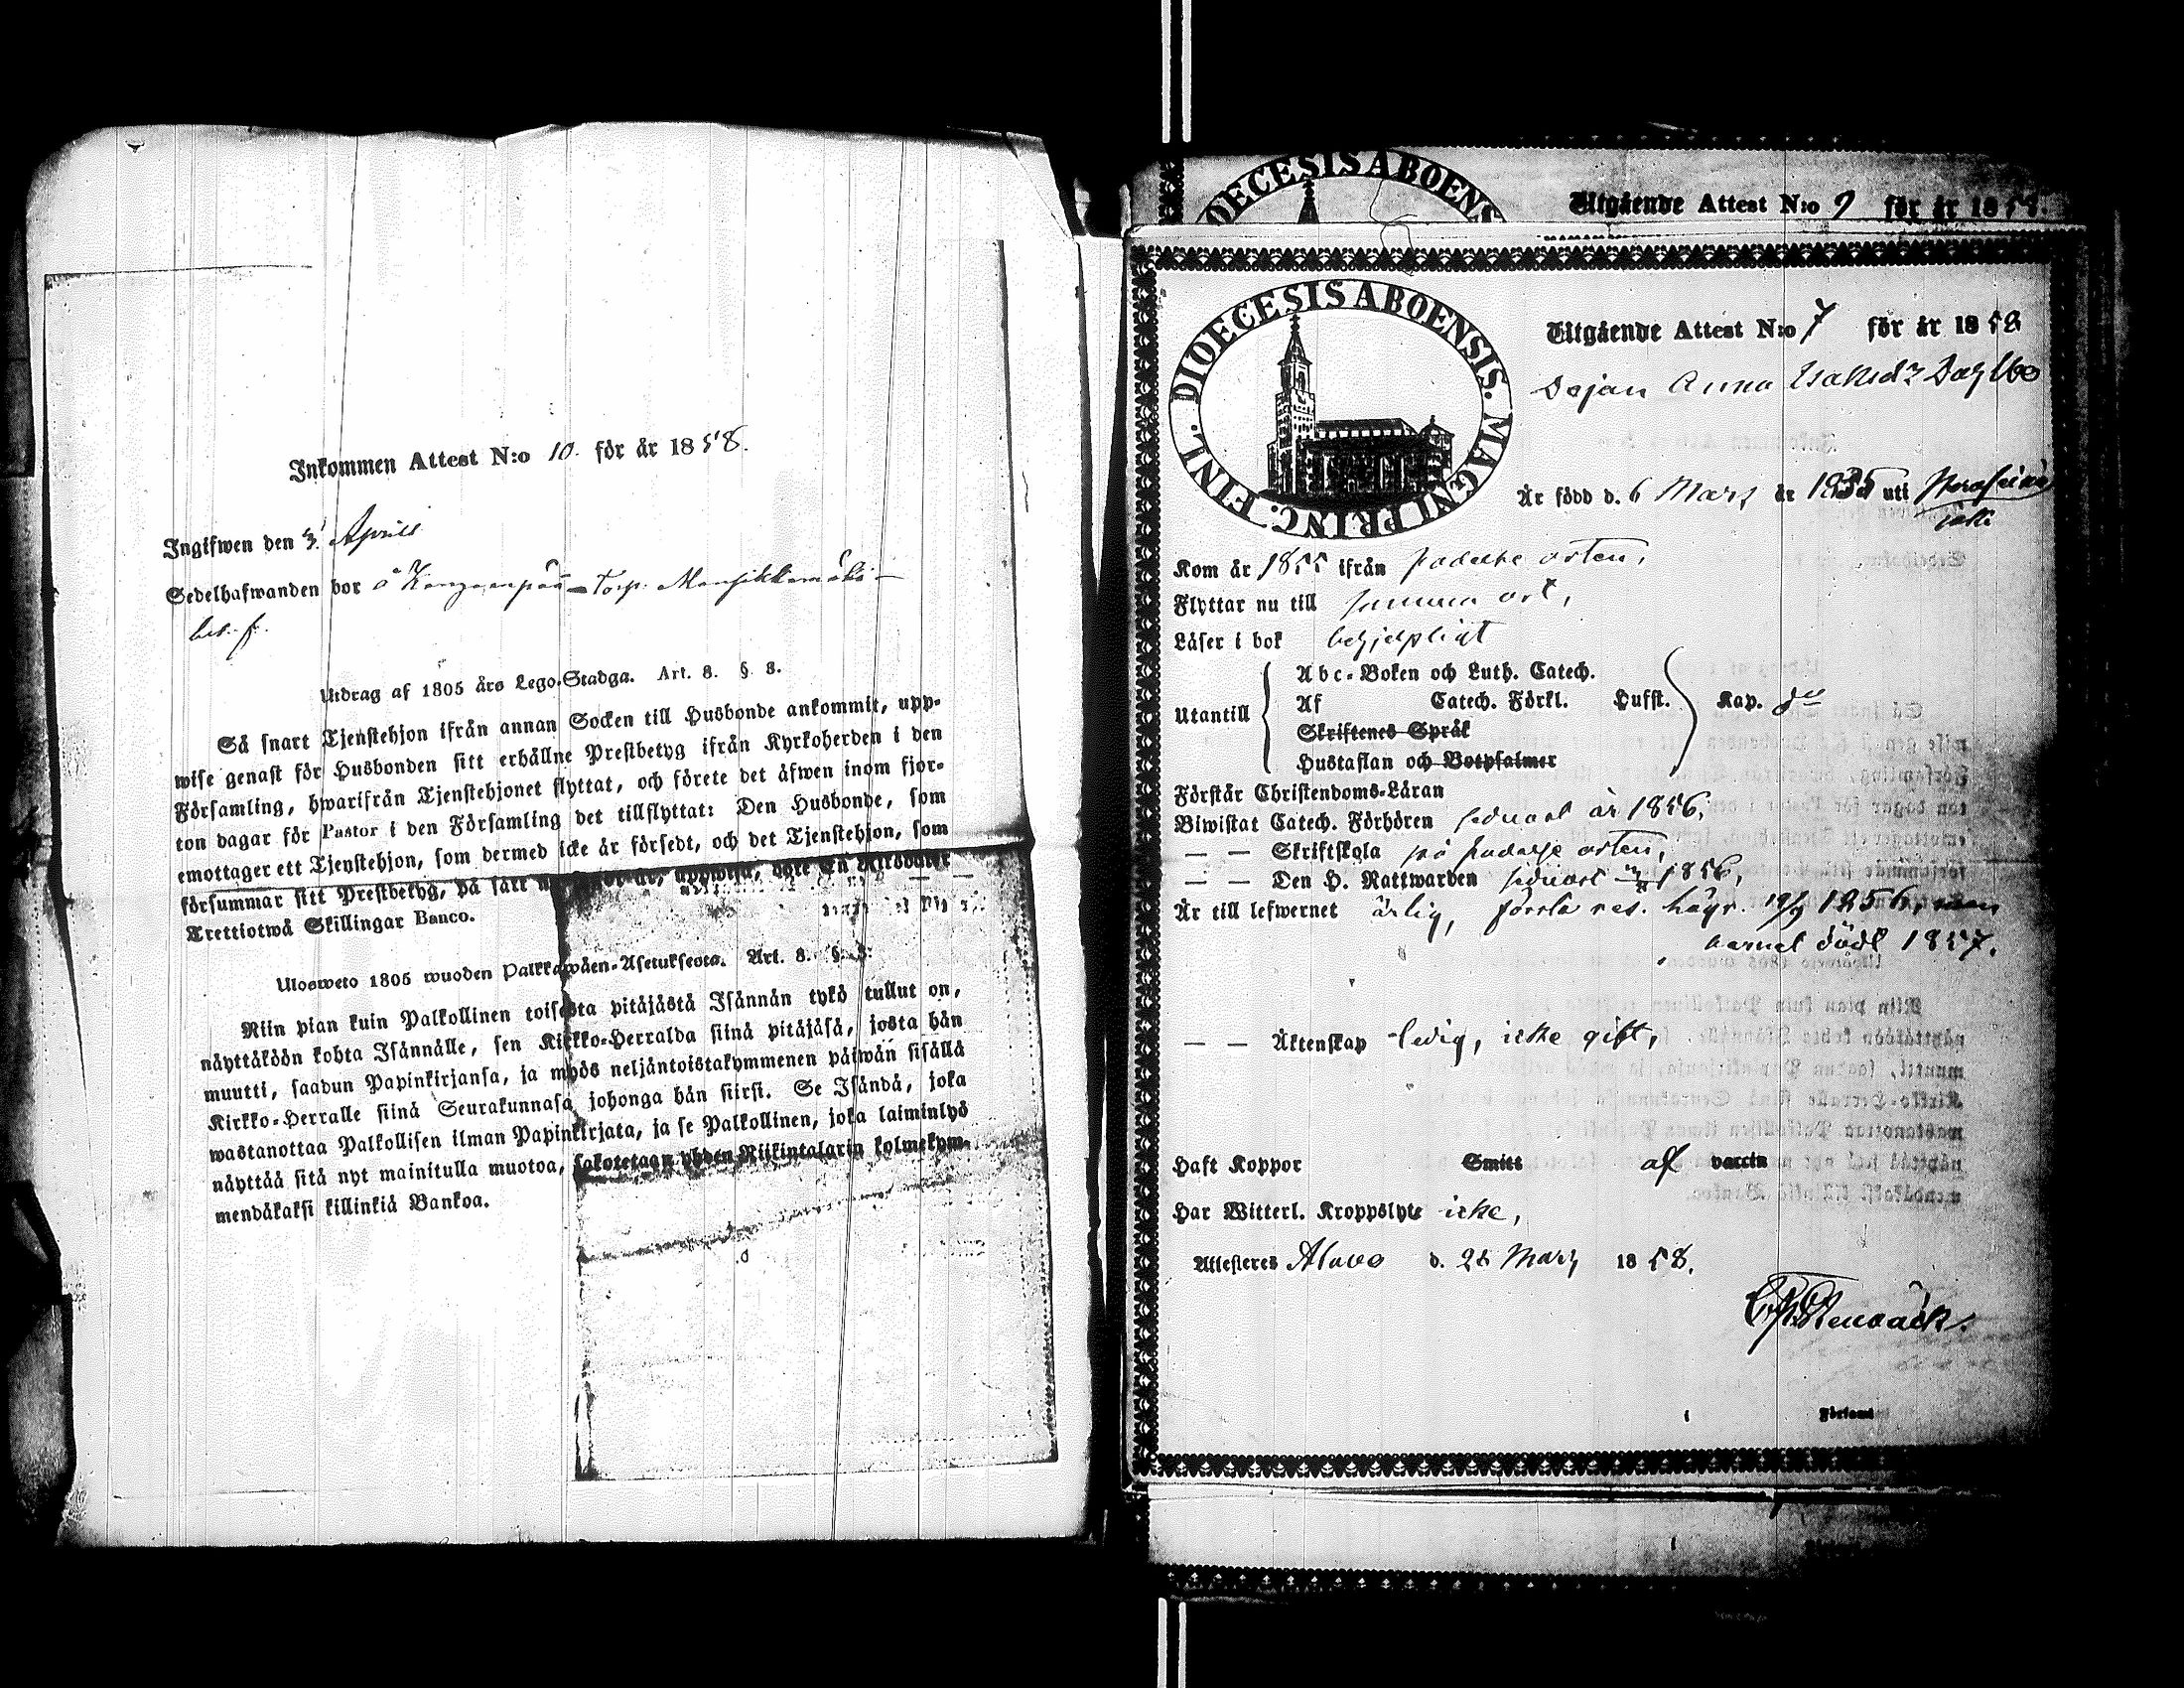 Inkommen Attest N:o 10. för år 1858.
Ingifwen den Aprill
Sedelhafwanden bor å Torp.
Utdrag af 1805 års Lego-Stadga. Art. 8. §. 8.
Så snart Tjenstehjon ifrån annan Socken till Husbonde ankommit, upp-
wise genast för Husbonden sitt erhållne Prestbetyg ifrån Kyrkoherden i den
Församling, hwarifrån Tjenstehjonet flyttat, och förete det äfwen inom fjor-
ton dagar för Pastor i den Församling det tillflyttat: Den Husbonde, som
emottager ett Tjenstehjon, som dermed icke är försedt, och det Tjenstehjon, som
försummar sitt Prestbetyg, på sätt uppwisa, böte En Riksdaler
Trettiotwå Skillingar Banco.
Ulosweto 1805 wuoden Palkkawäen-Asetuksesta. Art. 8. §. 8.
Niin pian kuin Palkollinen toisesta pitäjästä Isännän tykö tullut on,
näyttäköön kohta Isännälle, sen Kirkko-Herralda siinä pitäjäsä, josta hän
muutti, saadun Papinkirjansa, ja myös neljäntoistakymmenen päiwän sisällä
Kirkko-Herralle siinä Seurakunnasa johonga hän siirsi. Se Isändä, joka
wastanottaa Palkollisen ilman Papinkirjata, ja se Palkollinen, joka laiminlyö
näyttää sitä nyt mainitulla muotoa, sakotetaan yhden Riikintalarin kolmekym-
mendäkaksi killinkiä Bankoa.
DIOECESIS ABOENS
Utgående Attest N:o 9 för år 1858.
DIOECESIS ABOENSIS. MAGNI PRINC. FINL.
Utgående Attest N:o 7 för år 1858
Anna Isaksdr
Är född d. 6 Mars år 1835 uti
Kom år 1855 ifrån orten,
Flyttar nu till samma ort,
Läser i bok behjelpligt
Utantill
Abc-Boken och Luth. Catech.
Af Catech. Förkl. Hufst. Kap.
Skriftenes Språk
Hustaflan och Botpsalmer
Förstår Christendoms-Läran
Biwistat Catech. Förhören sednast år 1856,
— — Skriftskola på orten,
— — Den H. Nattwarden sednast 1856,
Är till lefwernet ärlig, första res. 19/9 1856, men
barnet dödt 1857.
— — Äktenskap ledig, icke gift,
Haft Koppor Smitt af vaccin
Har Witterl. Kroppslyte icke,
Attesteras Alavo d. 28 Mars 1858.